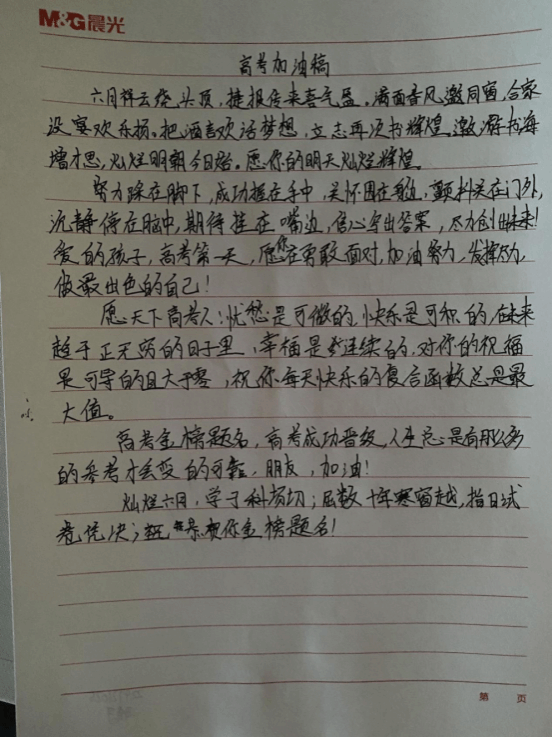 M&G晨光
高考加油稿
六月祥云绕头顶，捷报传来喜气盈。满面春风邀同窗，合家
设宴欢乐扬。把酒言欢话梦想，立志再次书辉煌。邀游书海
增才思，灿烂明朝今日始。愿你的明天灿烂辉煌
努力踩在脚下，成功握在手中，关怀围在身边，颤抖关在门外，
沉静停在脑中，期待挂在嘴边，信心写出答案，尽力创出未来！
爱的孩子，高考第一天，愿您在勇敢面对，加油努力，发挥尽力，
做最出色的自己！
愿天下高考人：忧愁是可微的，快乐是可积的，在未来
趋于正无穷的日子里，幸福是连续的，对你的祝福
是可导的且大于零，祝你每天快乐的复合函数总是最
大值。
高考金榜题名，高考成功晋级，人生总是有那么多
的参考才会变的可靠，朋友，加油！
灿烂六月，学子科场切；屈数十年寒窗越，指日试
卷凭决；恭祝你金榜题名！
第 页